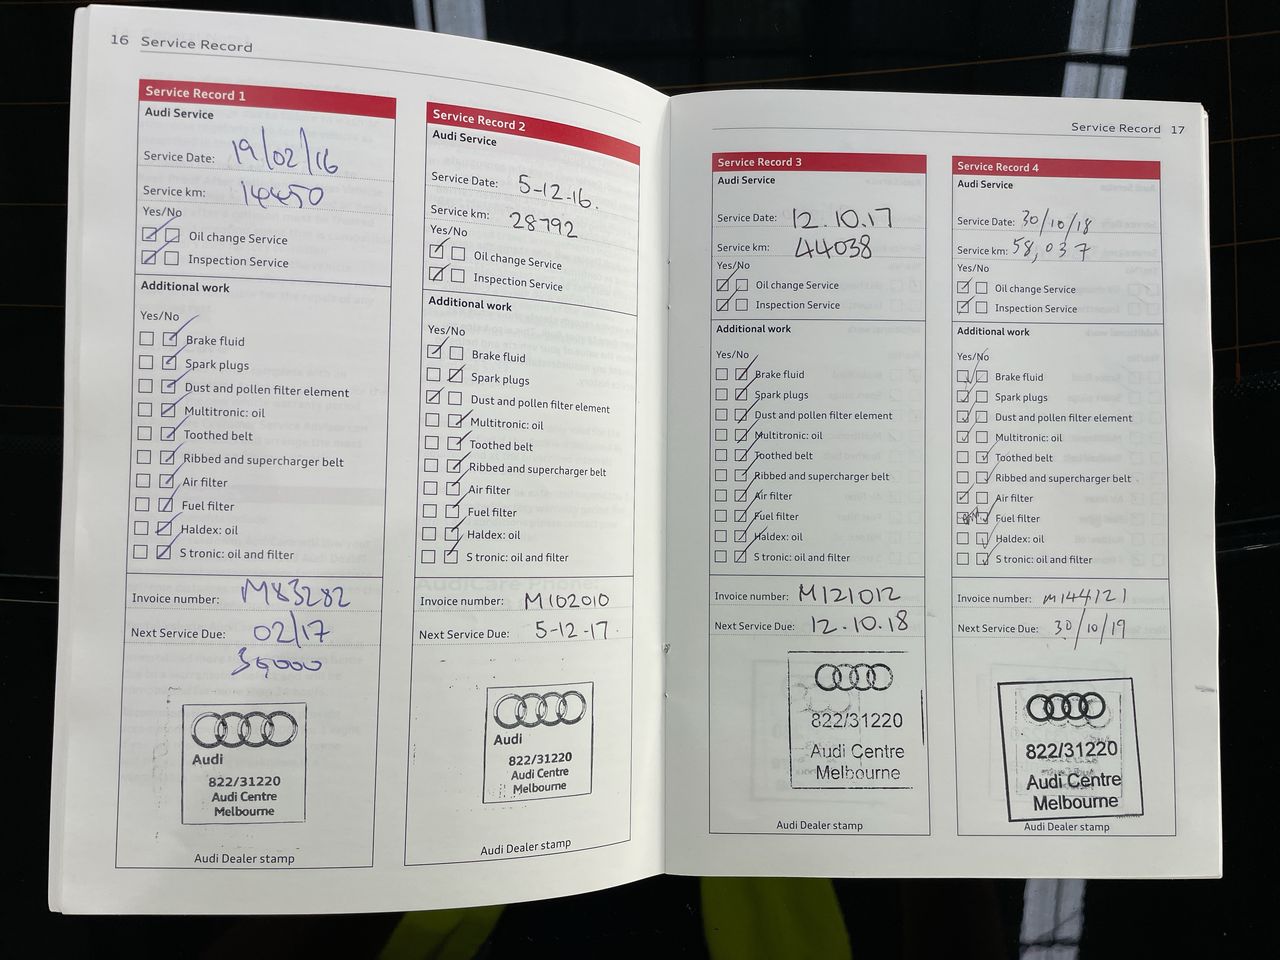 16 Service Record
Service Record 1
Audi Service
Service Date: 19/02/16
Service km: 14450
Yes/No
Oil change Service
Inspection Service
Additional work
Yes/No
Brake fluid
Spark plugs
Dust and pollen filter element
Multitronic: oil
Toothed belt
Ribbed and supercharger belt
Air filter
Fuel filter
Haldex: oil
S tronic: oil and filter
Invoice number: M83282
Next Service Due: 02/17
Audi
822/31220
Audi Centre
Melbourne
Audi Dealer stamp
Service Record 2
Audi Service
Service Date: 5-12-16.
Service km: 28792
Yes/No
Oil change Service
Inspection Service
Additional work
Yes/No
Brake fluid
Spark plugs
Dust and pollen filter element
Multitronic: oil
Toothed belt
Ribbed and supercharger belt
Air filter
Fuel filter
Haldex: oil
S tronic: oil and filter
Invoice number: M102010
Next Service Due: 5-12-17.
Audi
822/31220
Audi Centre
Melbourne
Audi Dealer stamp
Service Record 17
Service Record 3
Audi Service
Service Date: 12.10.17
Service km: 44038
Yes/No
Oil change Service
Inspection Service
Additional work
Yes/No
Brake fluid
Spark plugs
Dust and pollen filter element
Multitronic: oil
Toothed belt
Ribbed and supercharger belt
Air filter
Fuel filter
Haldex: oil
S tronic: oil and filter
Invoice number: M121012
Next Service Due: 12.10.18
822/31220
Audi Centre
Melbourne
Audi Dealer stamp
Service Record 4
Audi Service
Service Date: 30/10/18
Service km: 58,037
Yes/No
Oil change Service
Inspection Service
Additional work
Yes/No
Brake fluid
Spark plugs
Dust and pollen filter element
Multitronic: oil
Toothed belt
Ribbed and supercharger belt
Air filter
Fuel filter
Haldex: oil
S tronic: oil and filter
Invoice number: M144121
Next Service Due: 30/10/19
822/31220
Audi Centre
Melbourne
Audi Dealer stamp